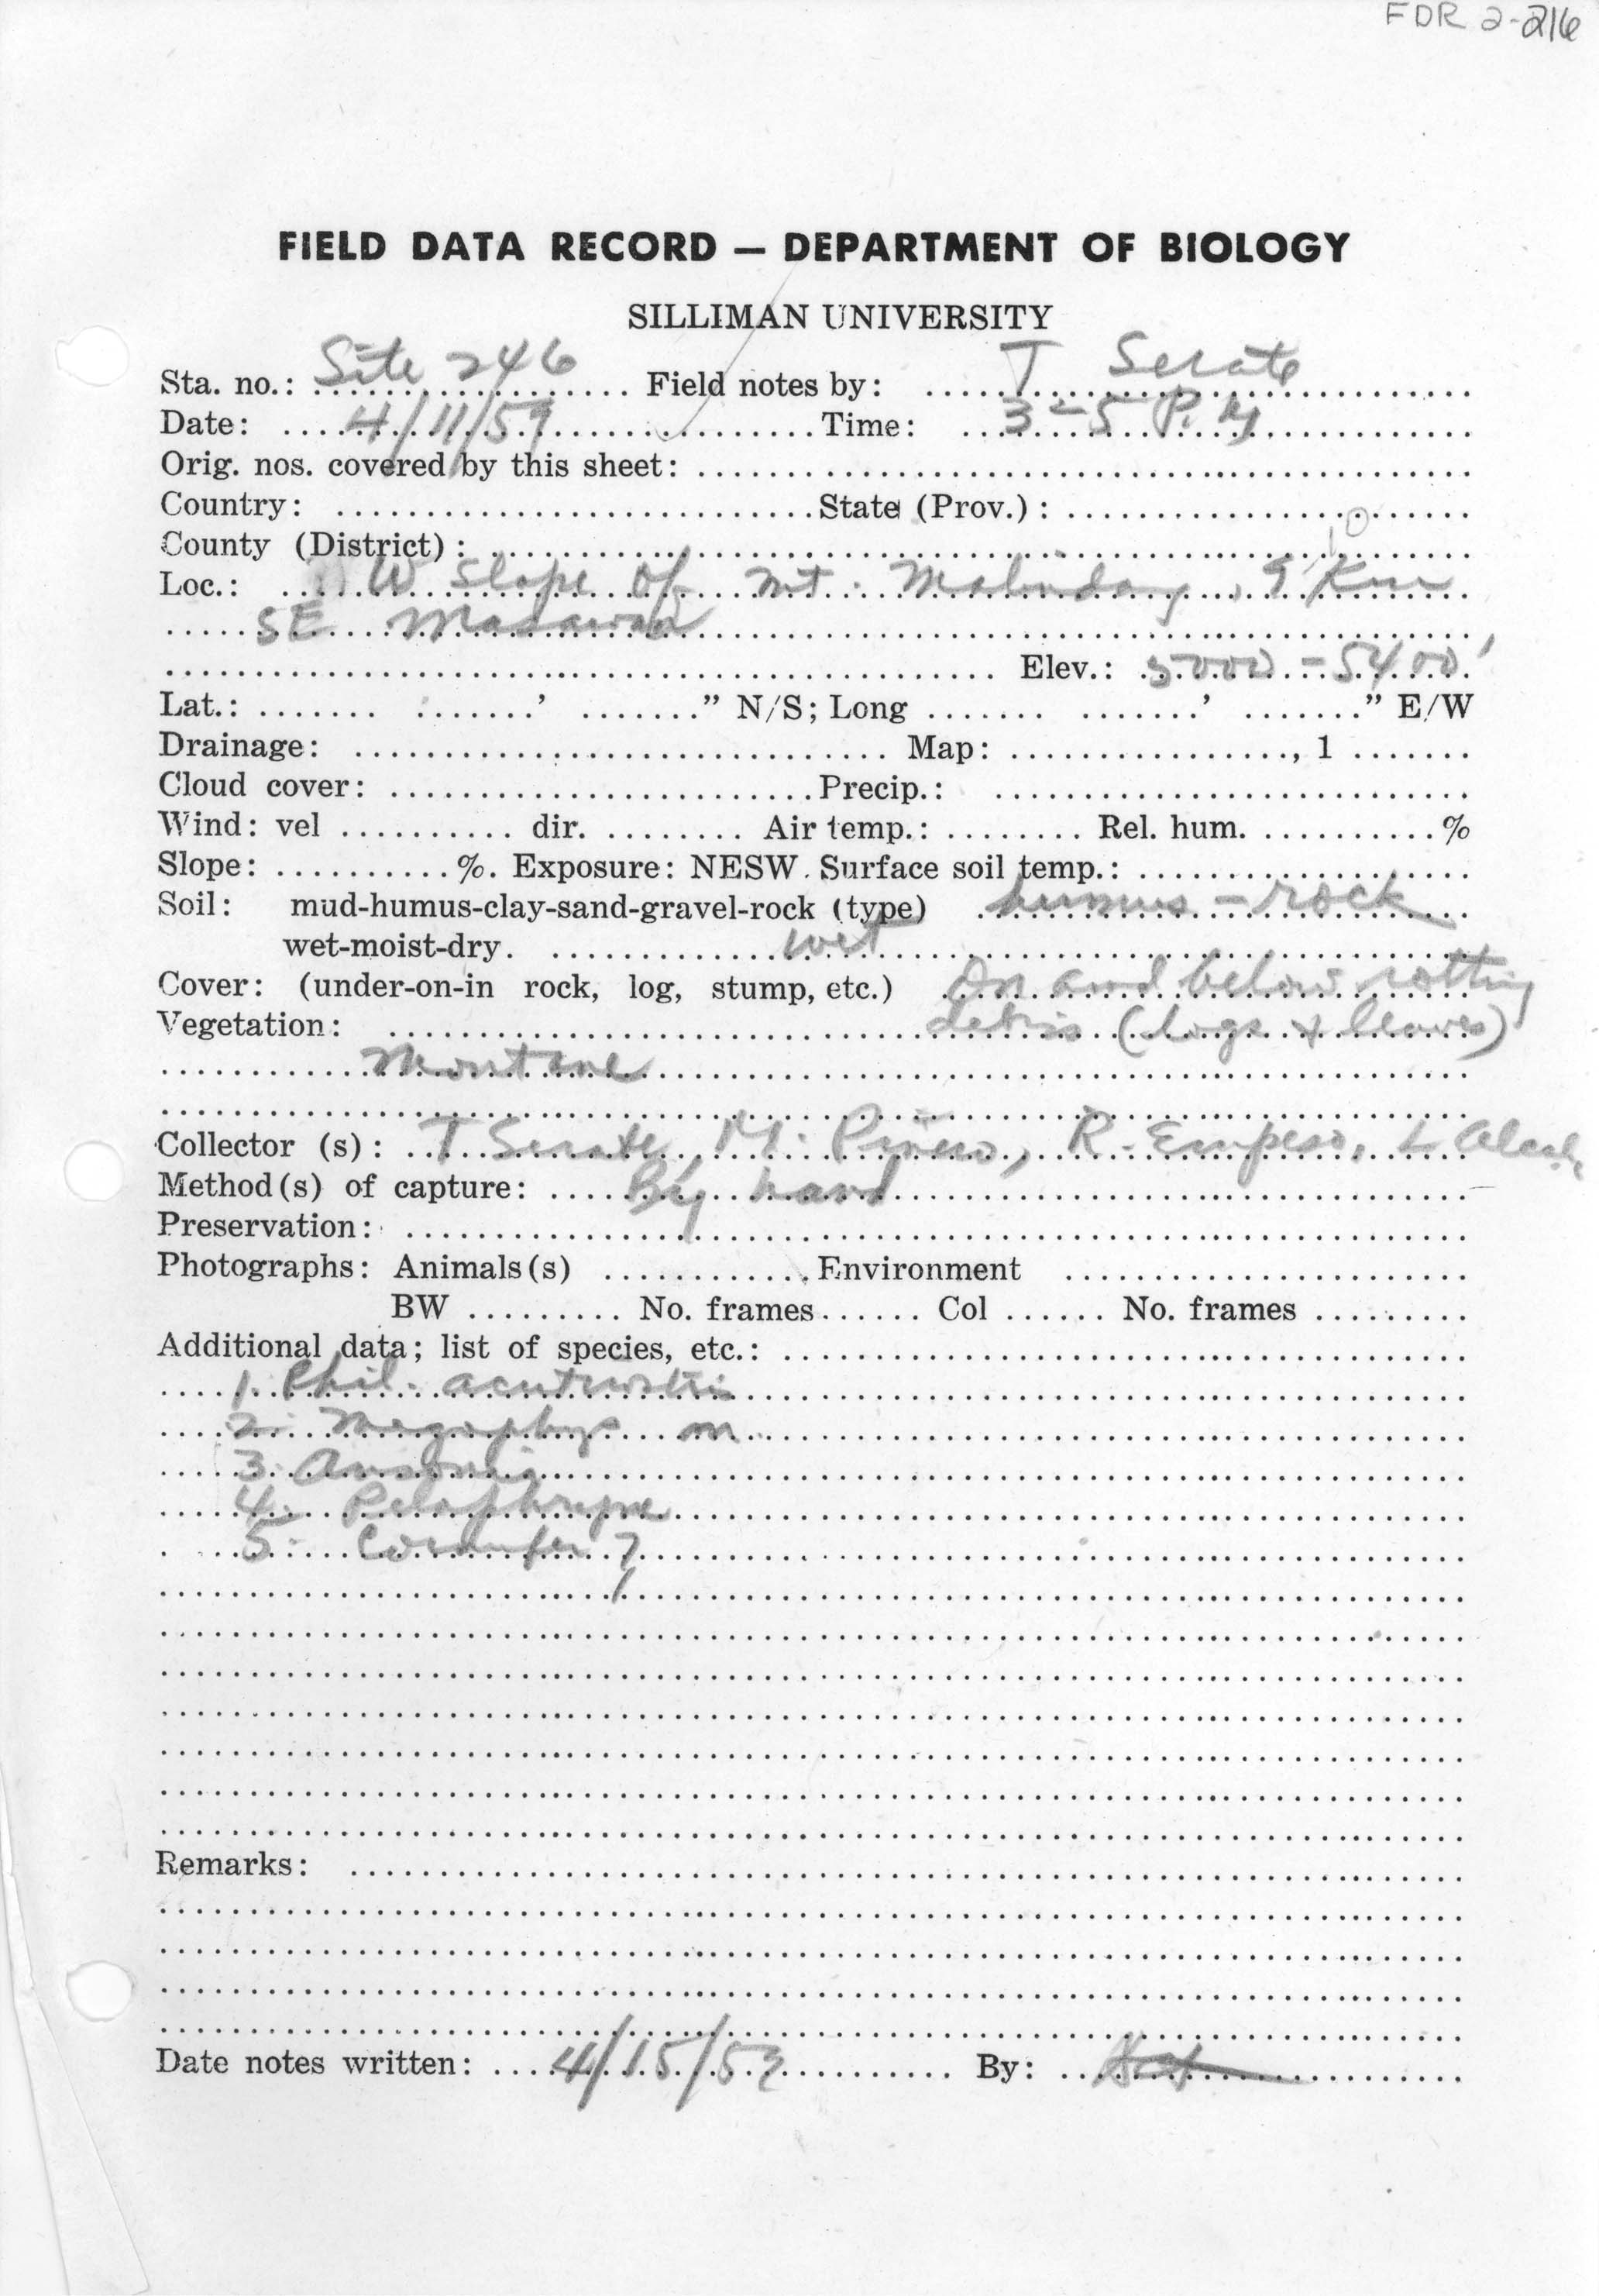 FDR 2-216
FIELD DATA RECORD — DEPARTMENT OF BIOLOGY
SILLIMAN UNIVERSITY
Sta. no.: Site 246 Field notes by: T Serate
Date: 4/11/59 Time: 3-5 P.M
Orig. nos. covered by this sheet:
Country: State (Prov.):
County (District): 10
Loc.: W slope of mt. Malindang, 9 Km
SE Masawan
Elev.: 5000 - 5400'
Lat.: ' " N/S; Long ' " E/W
Drainage: Map: , 1
Cloud cover: Precip.:
Wind: vel dir. Air temp.: Rel. hum. %
Slope: %. Exposure: NESW. Surface soil temp.:
Soil: mud-humus-clay-sand-gravel-rock (type) humus - rock
wet-moist-dry. wet
Cover: (under-on-in rock, log, stump, etc.) On and below rotting
Vegetation: debris (logs & leaves)
Montane
Collector (s): T Serate, M. Piñero, R. Empeso, L Alcala
Method(s) of capture: By hand
Preservation:
Photographs: Animals(s) Environment
BW No. frames Col No. frames
Additional data; list of species, etc.:
1. Phil. acutirostris
2. Megophys m.
3. Ansonia
4. Pelophryne
5. Cornufer ?
Remarks:
Date notes written: 4/15/59 By: